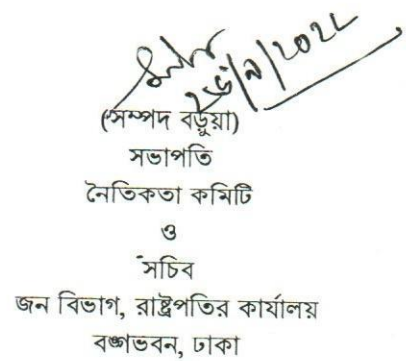 ২৬/৯/২০২২
(সম্পদ বড়ুয়া)
সভাপতি
নৈতিকতা কমিটি
ও
সচিব
জন বিভাগ, রাষ্ট্রপতির কার্যালয়
বঙ্গভবন, ঢাকা